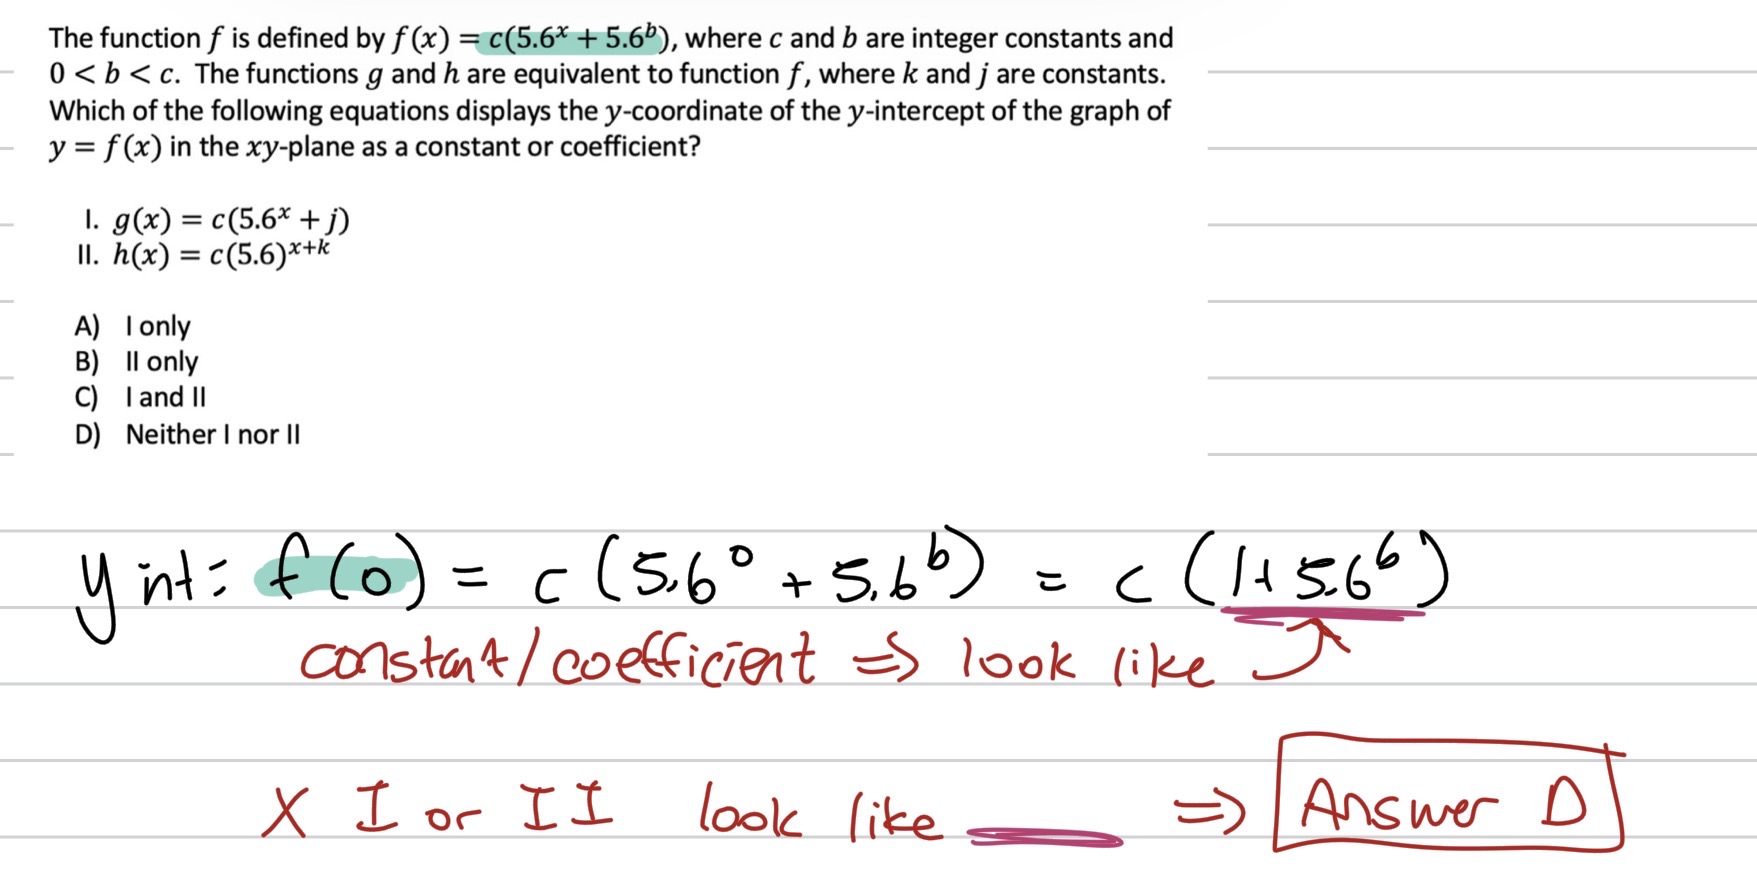 The function f is defined by f(x) = c(5.6ˣ + 5.6ᵇ), where c and b are integer constants and
0 < b < c. The functions g and h are equivalent to function f, where k and j are constants.
Which of the following equations displays the y-coordinate of the y-intercept of the graph of
y = f(x) in the xy-plane as a constant or coefficient?
I. g(x) = c(5.6ˣ + j)
II. h(x) = c(5.6)ˣ⁺ᵏ
A) I only
B) II only
C) I and II
D) Neither I nor II
y int: f(0) = c(5.6⁰ + 5.6ᵇ) = c(1+5.6ᵇ)
constant/coefficient ⇒ look like
X I or II look like ⇒ Answer D